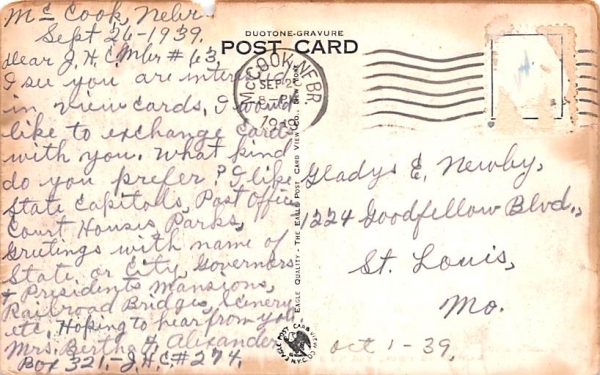 Mc Cook, Nebr
Sept 26-1939.
Dear J.H.C. Mbr # 63,
I see you are interested
in view cards, I would
like to exchange cards
with you. What kind
do you prefer? I like
State Capitols, Post Offices
Court Houses, Parks,
Greetings with name of
State or City, Governors
+ Presidents Mansions,
Railroad Bridges, Scenery
etc. Hoping to hear from you
Mrs. Bertha H. Alexander
Box 321, - J.H.C.# 274.
DUOTONE-GRAVURE
POST CARD
McCOOK, NEBR.
SEP 2
1939
EAGLE QUALITY - THE EAGLE POST CARD VIEW CO., NEW YORK
EAGLE POST CARD VIEW CO.
N.Y.C.
Gladys E. Newby,
1224 Goodfellow Blvd.,
St. Louis,
Mo.
Oct 1-39,